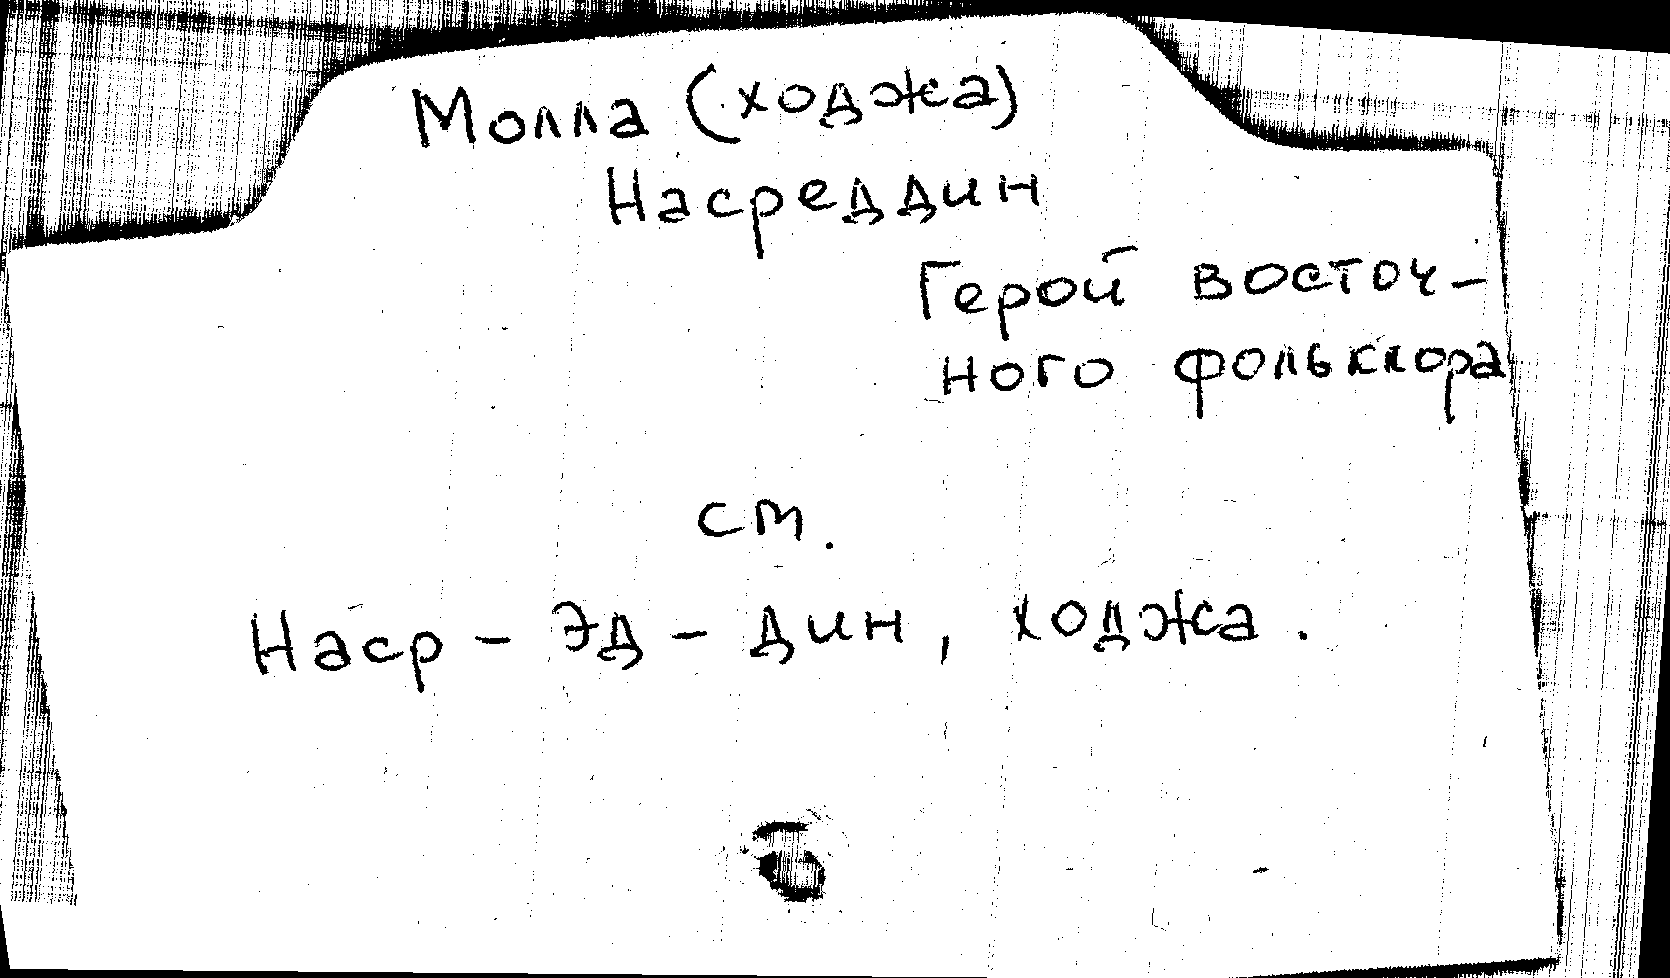 Молла (ходжа)
Насреддин
Герой восточ-
ного фольклора
см.
Наср - Эд - Дин, ходжа.